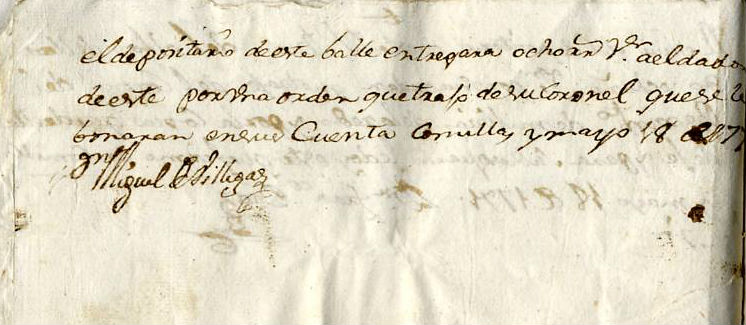 el depositario de este balle entregara ocho rr.s Vn. a el dador
de este por vna orden que trajo de su Coronel que se le
bonaran en sus Cuenta Comillas y mayo 18 de 17
Miguel de Villegas